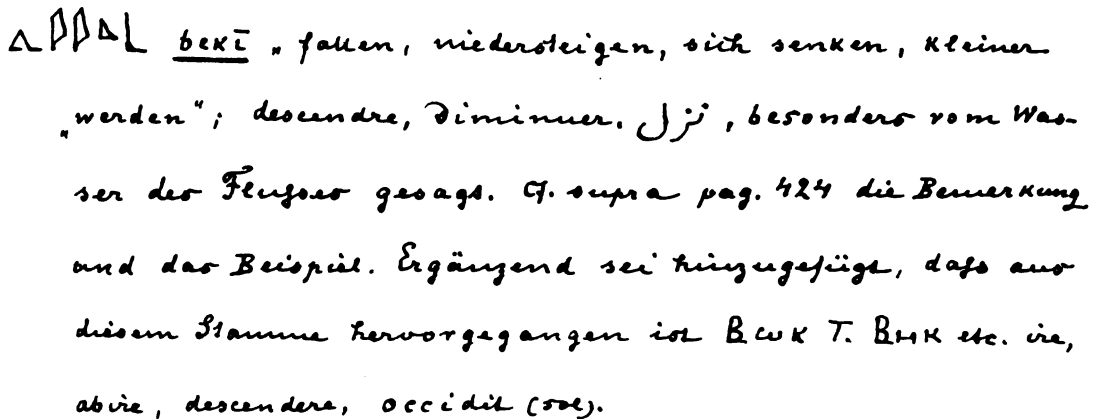 bekī „fallen, niedersteigen, sich senken, kleiner
„werden“; descendre, diminuer. نزل, besonders vom Was-
ser des Flusses gesagt. Cf. supra pag. 424 die Bemerkung
und das Beispiel. Ergänzend sei hinzugefügt, dass aus
diesem Stamme hervorgegangen ist ⲃⲱⲕ T. ⲃⲏⲕ etc. ire,
abire, descendere, occidit (sol).